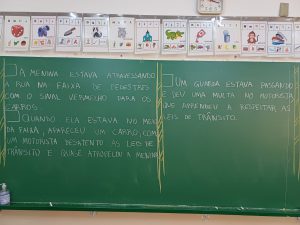 A MENINA ESTAVA ATRAVESSANDO
A RUA NA FAIXA DE PEDESTRES
COM O SINAL VERMELHO PARA OS
CARROS.
QUANDO ELA ESTAVA NO MEIO
DA FAIXA, APARECEU UM CARRO, COM
UM MOTORISTA DESATENTO AS LEIS DE
TRÂNSITO E QUASE ATROPELOU A MENINA
UM GUARDA ESTAVA PASSANDO
E DEU UMA MULTA NO MOTORISTA
QUE APRENDEU A RESPEITAR AS
LEIS DE TRÂNSITO.